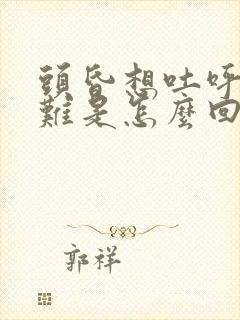 頭昏想吐呼
難是怎麼回
郭祥